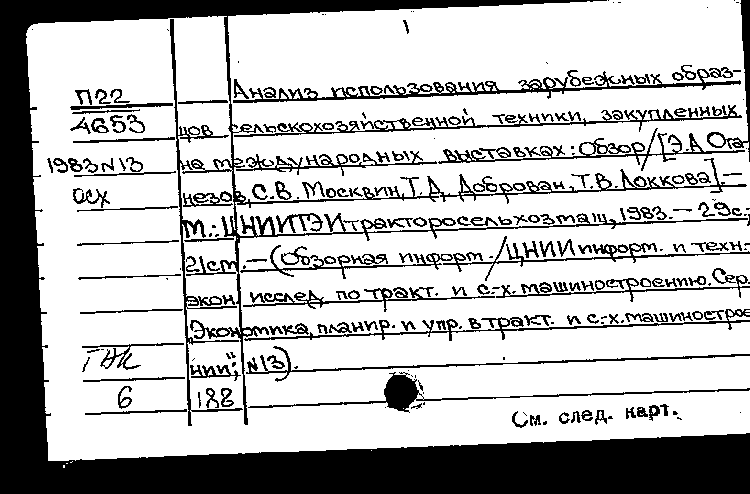 1
П22 Анализ использования зарубежных образ-
4653 цов сельскохозяйственной техники, закупленных
1983 N13 на международных выставках: Обзор/[Э.А. Ога-
осх незов, С.В. Москвин, Т.Д. Доброван, Т.В. Локкова].—
М.: ЦНИИТЭИтракторосельхозмаш, 1983.— 29с.;
21см.—(Обзорная информ./ЦНИИ информ. и техн.-
экон. исслед. по тракт. и с.-х. машиностроению. Сер.
„Экономика, планир. и упр. в тракт. и с.-х. машинострое
нии"; N13).
6 188
См. след. карт.